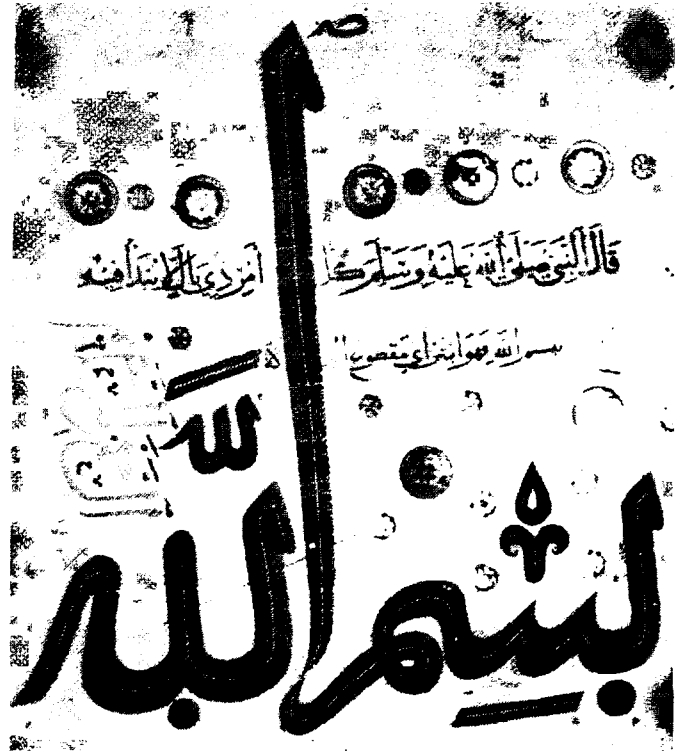 قَالَ النَّبِيُّ صَلَّى اللَّهُ عَلَيْهِ وَسَلَّمَ كُلُّ أَمْرٍ ذِي بَالٍ لَا يُبْتَدَأُ فِيهِ
بسم الله فهو ابتر اي مقصوع
لله
بِسْمِ اللَّهِ